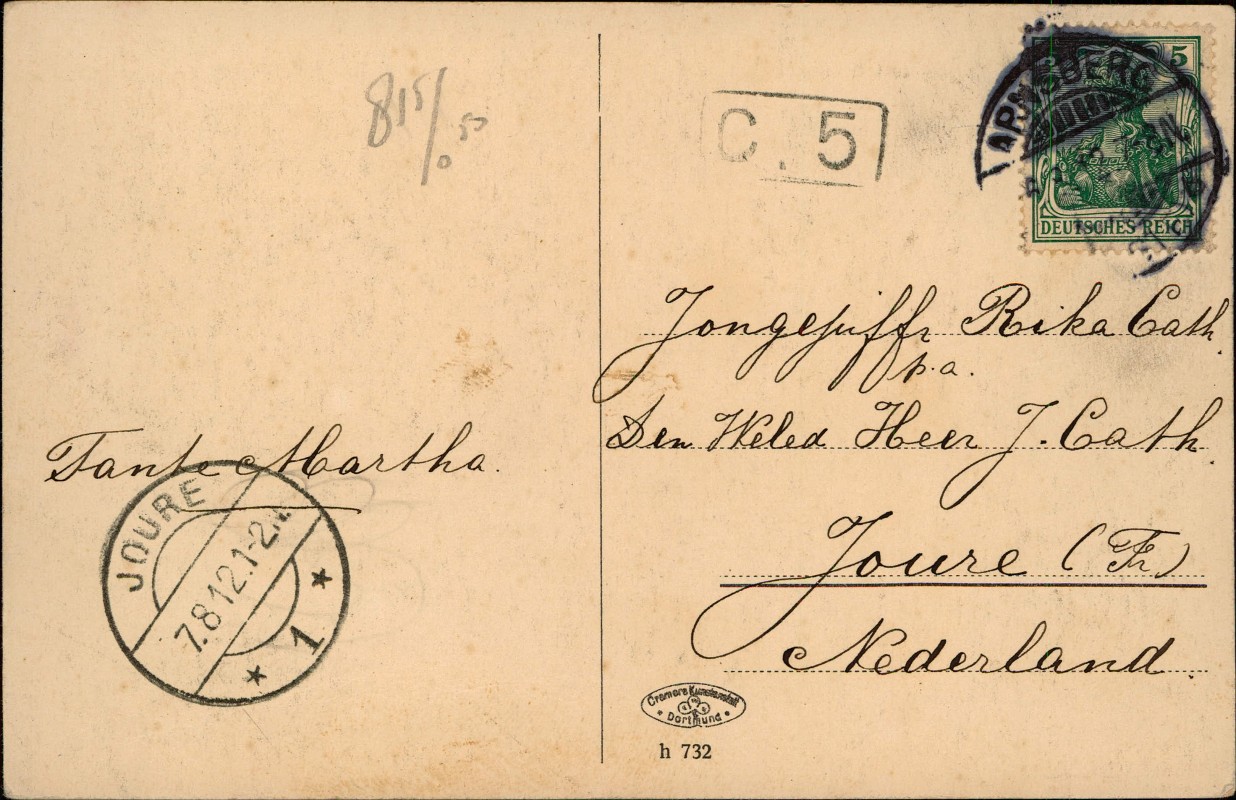 815/0.50
C. 5
5
ARNSBERG
DEUTSCHES REICH
Jongejuffr Rika Cath.
p.a.
Den Weled Heer J. Cath.
Joure (Fr)
Nederland.
Tante Martha.
JOURE
7.8.12.1-2.N.
1
Cramers Kunstanstalt
Dortmund
h 732